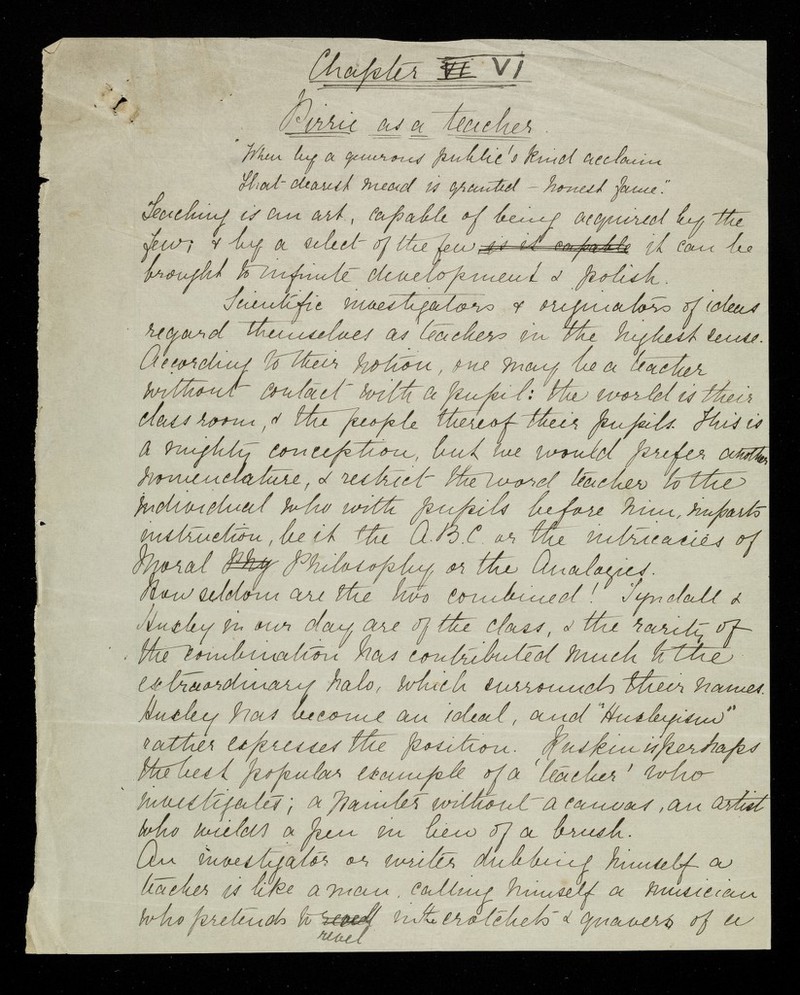 Chapter VI VI
Pirrie as a teacher.
"When by a generous public's kind acclaim
That dearest mead is granted – honest fame."
Teaching is an art, capable of being acquired by the
few; & by a select of the few as it capable it can be
brought to infinite development & polish.
Scientific investigators & originators of ideas
regard themselves as teachers in the highest sense.
According to their notion, one may be a teacher
without contact with a pupil: the world is their
class room, & the people thereof their pupils. This is
a mighty conception, but we would prefer another
nomenclature, & restrict the word teacher to the
individual who with pupils before him, imparts
instruction, be it the A.B.C. or the intricacies of
Moral Phy Philosophy or the Analogies.
How seldom are the two combined! Tyndall &
Huxley in our day are of the class, & the rarity of
the combination has contributed much to the
extraordinary halo, which surrounds their names.
Huxley has become an ideal, and "Huxleyism"
rather expresses the position. Ruskin is perhaps
the best popular example of a 'teacher' who
investigates; a painter without a canvas, an artist
who wields a pen in lieu of a brush.
An investigator or writer dubbing himself a
teacher is like a man, calling himself a musician
who pretends to revel in the crotchets & quavers of a